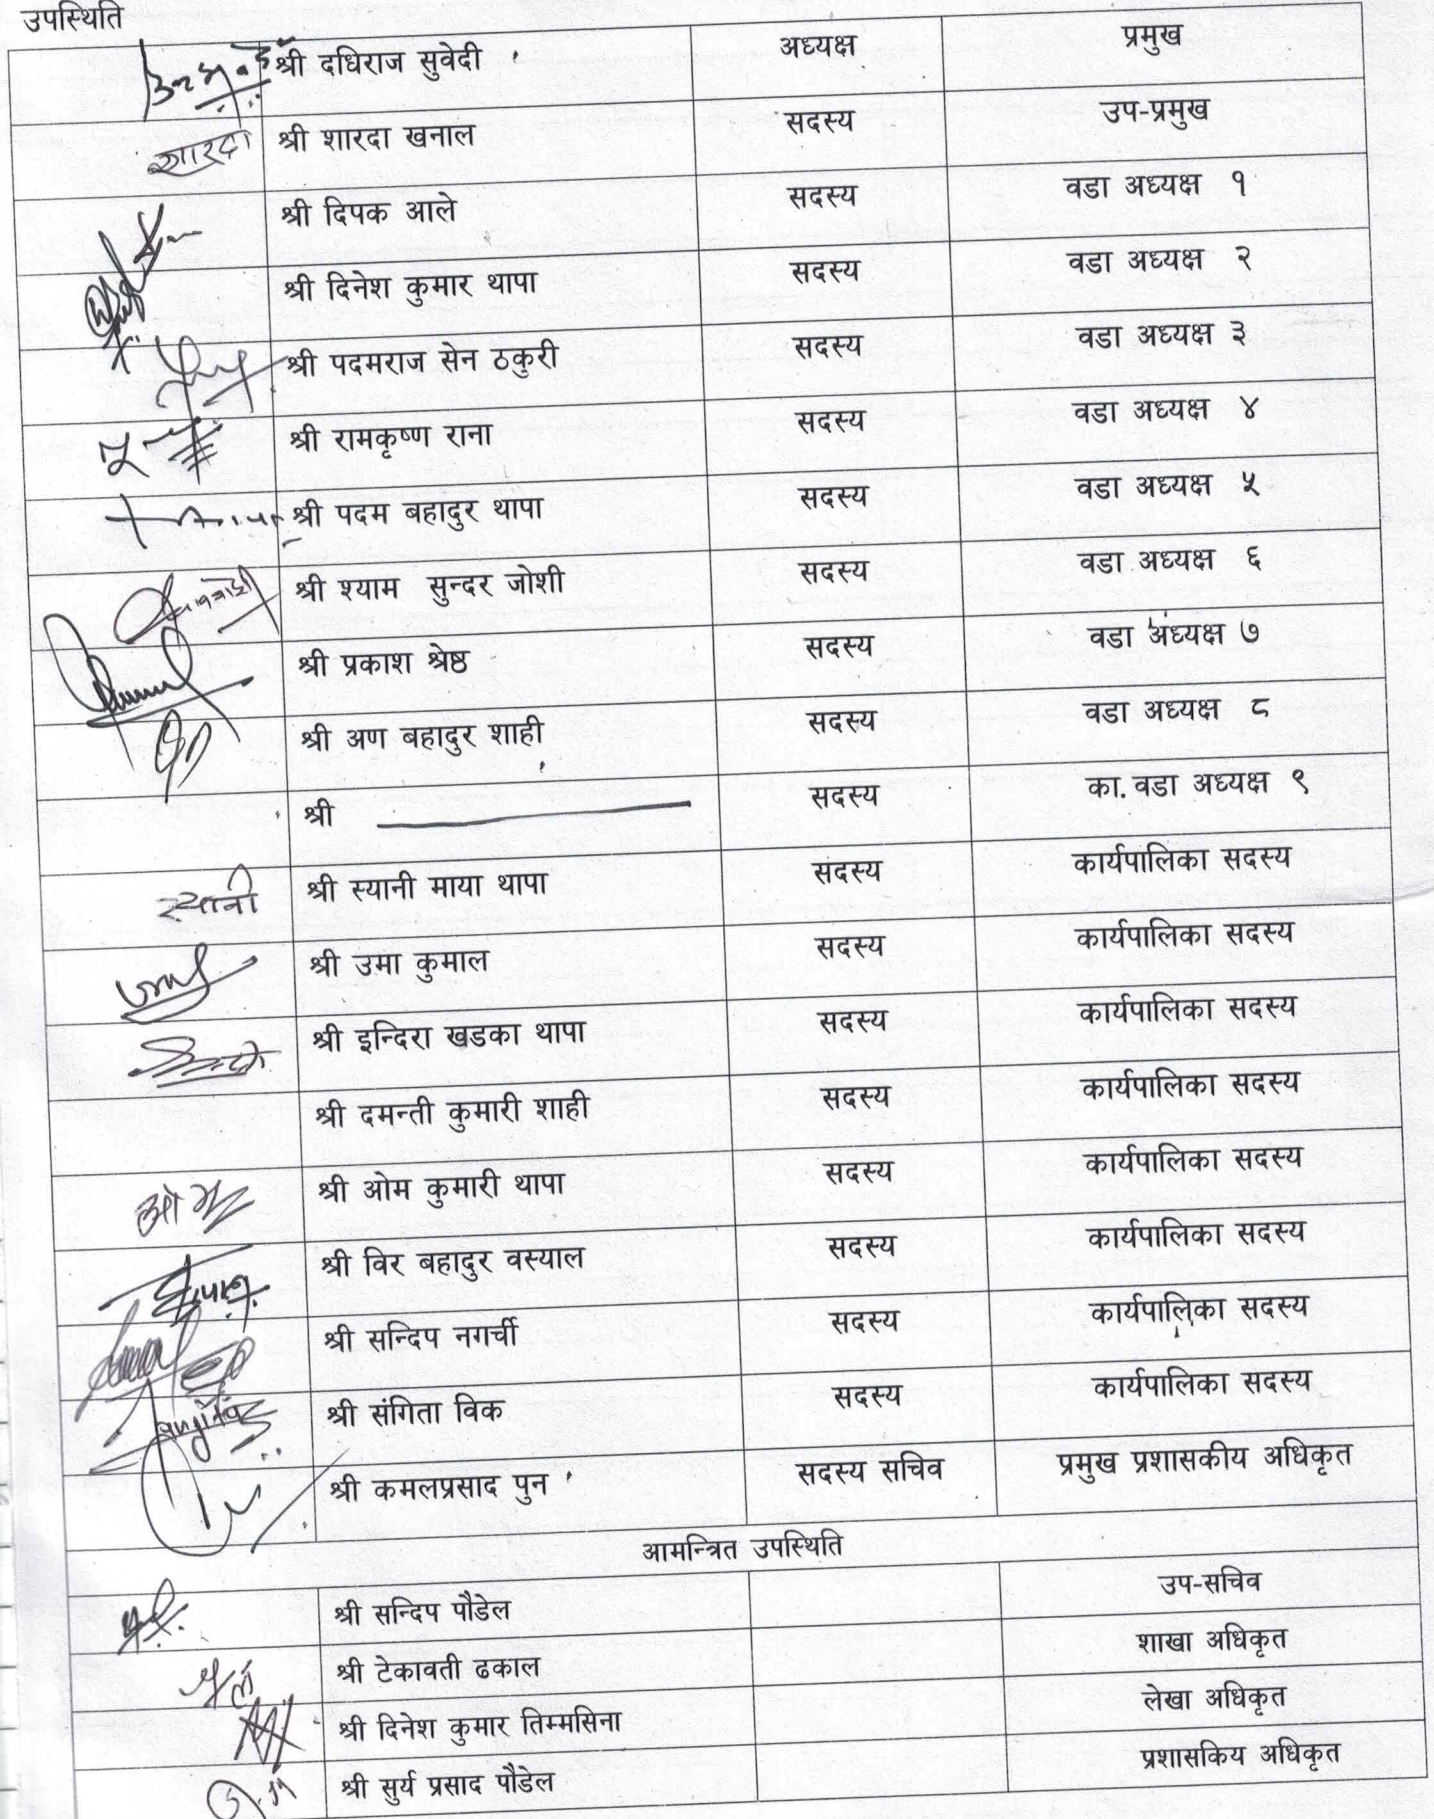 उपस्थिति
श्री दधिराज सुवेदी अध्यक्ष प्रमुख
शारदा श्री शारदा खनाल सदस्य उप-प्रमुख
श्री दिपक आले सदस्य वडा अध्यक्ष १
श्री दिनेश कुमार थापा सदस्य वडा अध्यक्ष २
श्री पदमराज सेन ठकुरी सदस्य वडा अध्यक्ष ३
श्री रामकृष्ण राना सदस्य वडा अध्यक्ष ४
श्री पदम बहादुर थापा सदस्य वडा अध्यक्ष ५
श्री श्याम सुन्दर जोशी सदस्य वडा अध्यक्ष ६
श्री प्रकाश श्रेष्ठ सदस्य वडा अध्यक्ष ७
श्री अण बहादुर शाही सदस्य वडा अध्यक्ष ८
श्री सदस्य का. वडा अध्यक्ष ९
स्यानी श्री स्यानी माया थापा सदस्य कार्यपालिका सदस्य
श्री उमा कुमाल सदस्य कार्यपालिका सदस्य
श्री इन्दिरा खडका थापा सदस्य कार्यपालिका सदस्य
श्री दमन्ती कुमारी शाही सदस्य कार्यपालिका सदस्य
श्री ओम कुमारी थापा सदस्य कार्यपालिका सदस्य
श्री विर बहादुर वस्याल सदस्य कार्यपालिका सदस्य
श्री सन्दिप नगर्ची सदस्य कार्यपालिका सदस्य
श्री संगिता विक सदस्य कार्यपालिका सदस्य
श्री कमलप्रसाद पुन सदस्य सचिव प्रमुख प्रशासकीय अधिकृत
आमन्त्रित उपस्थिति
श्री सन्दिप पौडेल उप-सचिव
श्री टेकावती ढकाल शाखा अधिकृत
श्री दिनेश कुमार तिम्मसिना लेखा अधिकृत
श्री सुर्य प्रसाद पौडेल प्रशासकिय अधिकृत